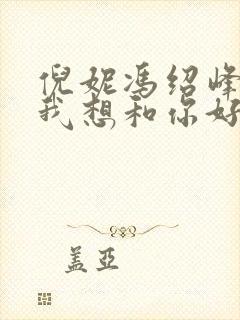 倪妮冯绍峰
我想和你好
盖亚